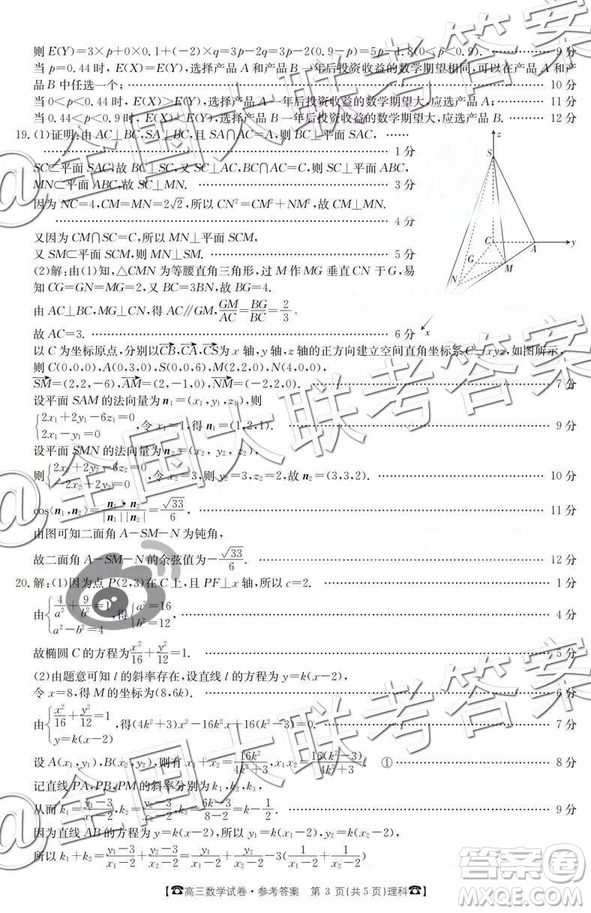 则 E(Y)=3×p+0×0.1+(-2)×q=3p-2q=3p-2(0.9-p)=5p-1.8(0<p<0.9). 9分
当 p=0.44时,E(X)=E(Y),选择产品A和产品B一年后投资收益的数学期望相同,可以在产品A和产
品B中任选一个; 10分
当 0<p<0.44时,E(X)>E(Y),选择产品A一年后投资收益的数学期望大,应选产品A; 11分
当 0.44<p<0.9时,E(X)<E(Y),选择产品B一年后投资收益的数学期望大,应选产品B. 12分
19.(1)证明:由AC⊥BC,SA⊥BC,且SA∩AC=A,则BC⊥平面SAC,
1分
SC⊂平面SAC,故BC⊥SC,又SC⊥AC,则SC⊥平面ABC,
MN⊂平面ABC,故SC⊥MN. 3分
因为NC=4,CM=MN=2√2,所以CN²=CM²+NM²,故CM⊥MN.
4分
又因为CM∩SC=C,所以MN⊥平面SCM,
又SM⊂平面SCM,则SM⊥MN. 5分
(2)解:由(1)知,△CMN为等腰直角三角形,过M作MG⊥CN于G,易
知CG=GN=MG=2,又BN=2,故BG=4.
由AC⊥BC,MG⊥CN,得AC∥GM,GM/AC=BG/BC=2/3,
故AC=3. 6分
以C为坐标原点,分别以CB,CA,CS为x轴,y轴,z轴的正方向建立空间直角坐标系C-xyz,如图所示,
则C(0,0,0),A(0,3,0),S(0,0,6),M(2,2,0),N(4,0,0),
SM=(2,2,-6),AM=(2,-1,0),MN=(2,-2,0). 7分
设平面SAM的法向量为n₁=(x₁,y₁,z₁),则
{2x₁+2y₁-6z₁=0
2x₁-y₁=0
,令x₁=1,得n₁=(1,2,1). 9分
设平面SMN的法向量为n₂=(x₂,y₂,z₂),
则{2x₂+2y₂-6z₂=0
2x₂-2y₂=0
,令x₂=3,得y₂=3,z₂=2,故n₂=(3,3,2). 10分
cos⟨n₁,n₂⟩=n₁·n₂/|n₁||n₂|=√33/6, 11分
由图可知二面角A-SM-N为钝角,
故二面角A-SM-N的余弦值为-√33/6. 12分
20.解:(1)因为点P(2,3)在C上,且PF⊥x轴,所以c=2. 1分
由{4/a²+9/b²=1
a²-b²=4
,得{a²=16
b²=12
, 4分
故椭圆C的方程为x²/16+y²/12=1. 5分
(2)由题意可知l的斜率存在,设直线l的方程为y=k(x-2),
令x=8,得M的坐标为(8,6k). 6分
由{x²/16+y²/12=1
y=k(x-2)
,得(4k²+3)x²-16k²x+16(k²-3)=0. 7分
设A(x₁,y₁),B(x₂,y₂),则有x₁+x₂=16k²/4k²+3,x₁x₂=16(k²-3)/4k²+3. ① 8分
记直线PA,PB,PM的斜率分别为k₁,k₂,k₃,
从而k₁=y₁-3/x₁-2,k₂=y₂-3/x₂-2,k₃=6k-3/8-2=k-1/2. 9分
因为直线AB的方程为y=k(x-2),所以y₁=k(x₁-2),y₂=k(x₂-2),
所以k₁+k₂=y₁-3/x₁-2+y₂-3/x₂-2=y₁/x₁-2+y₂/x₂-2-3(1/x₁-2+1/x₂-2)
☎高三数学试卷·参考答案 第3页(共5页)理科☎
@全国大联考答案